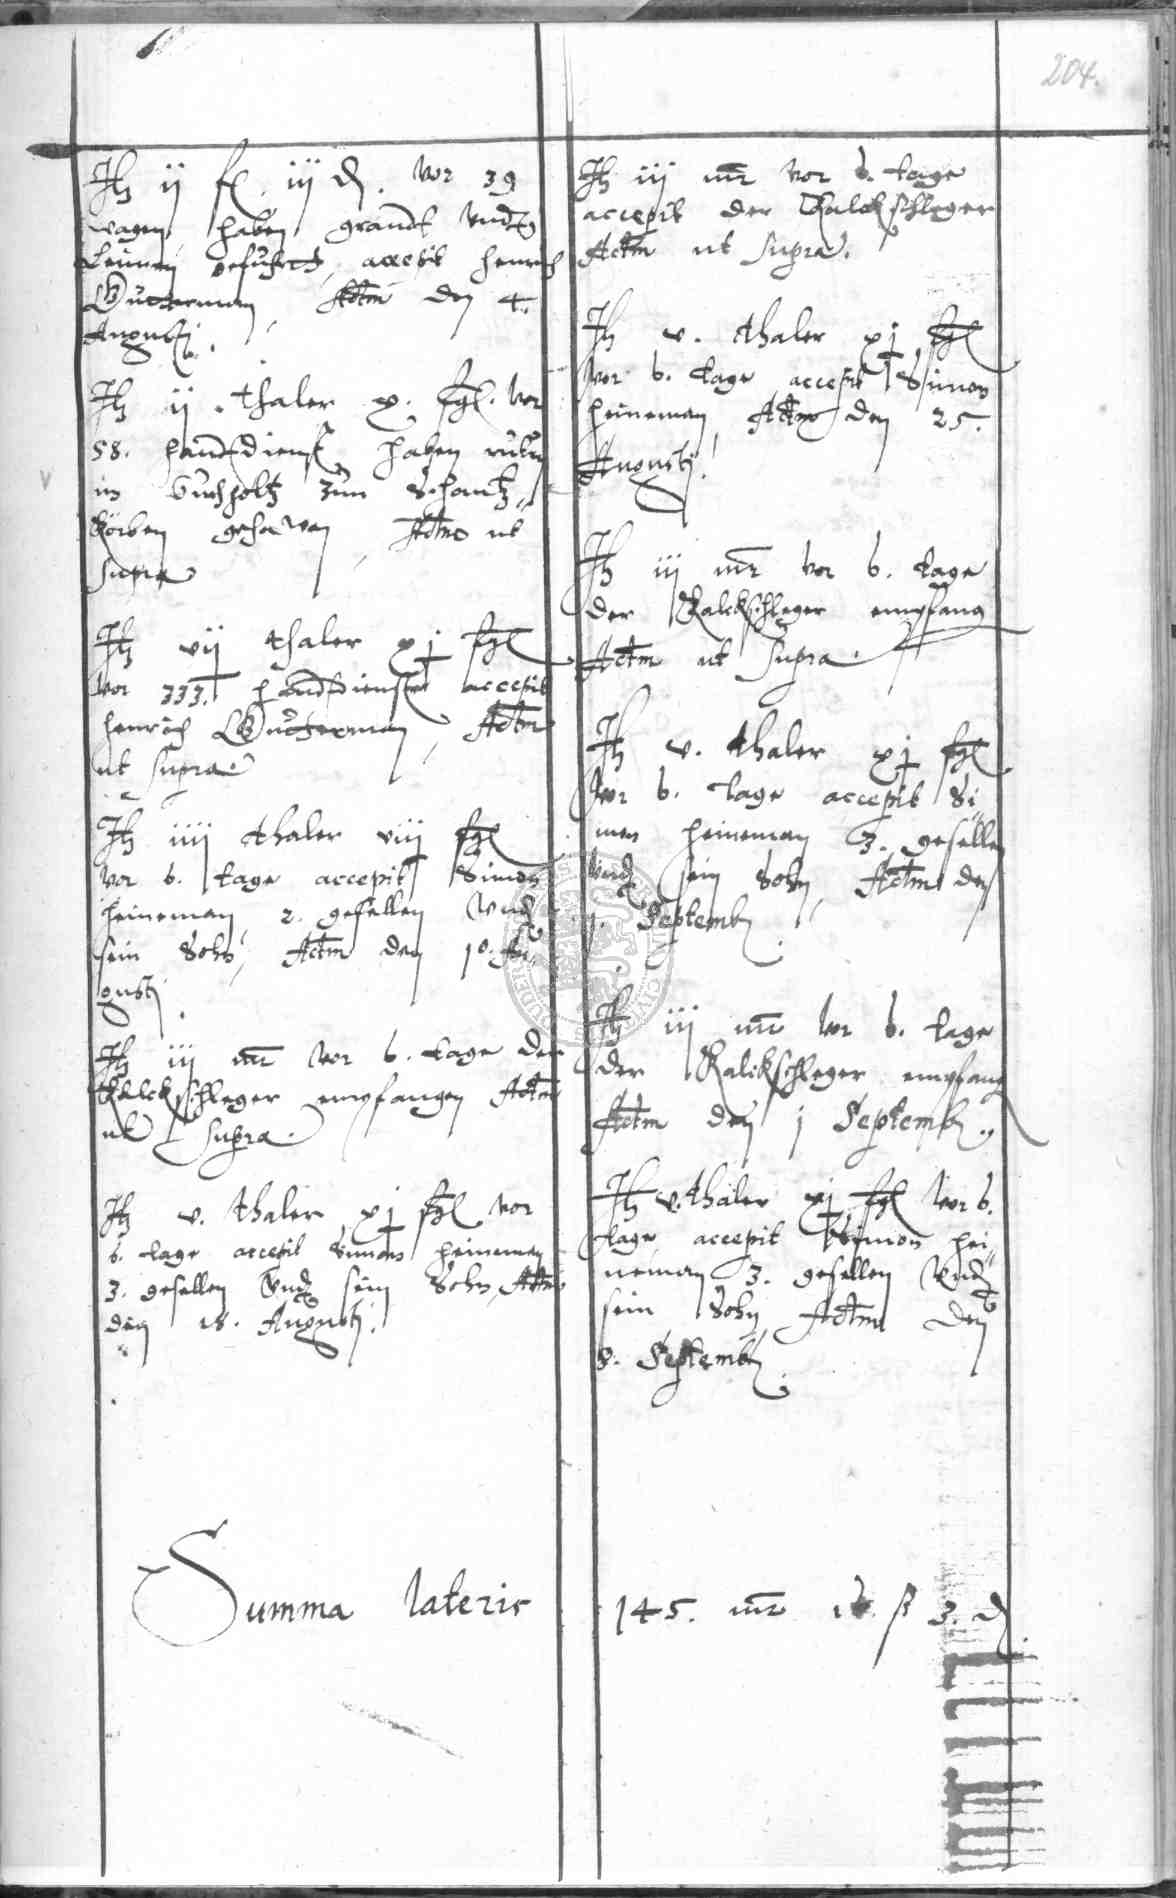 204.
Itz ij fl. iij d. vor 39
wagen, haben grandt vndt
Leimen gefuhrtt, accepit Henrich
Gutterman, Actm den 4.
Augusti.
Itz ij thaler x. fgl. vor
58. handtdienst haben
im Buchholtz zum Schantz
Körben gehawen, Actm ut
supra
Itz vij thaler xj fgl
vor 333. handtdienste accepit
Henrich Gutterman, Actm
ut supra
Itz iiij thaler viij fgl
vor 6. tage accepit Simon
Heineman, 2. gesellen vnd
sein Sohn, Actm den 10. Au
gusti
Itz iij mr vor 6. tage der
Kalckschleger empfangen Actm
ut supra.
Itz v. thaler xj fgl vor
6. tage accepit Simon Heineman
3. gesellen vnd sein Sohn, Actm
den 18. Augusti.
Itz iij mr vor 6. tage
accepit der Kalckschleger
Actm ut supra.
Itz v. thaler xj fgl
vor 6. tage accepit Simon
Heineman, Actm den 25.
Augusti.
Itz iij mr vor 6. tage
der Kalckschleger empfang
Actm ut supra.
Itz v. thaler xj fgl
vor 6. tage accepit Si
mon Heineman 3. gesellen
vnd sein Sohn, Actm den
1. Septemb.
Itz iij mr vor 6. tage
der Kalckschleger empfang
Actm den j Septemb.
Itz v. thaler xj fgl vor 6.
tage accepit Simon Hei
neman 3. gesellen vnd
sein Sohn Actm den
8. Septemb.
Summa lateris 145. mr ß 3. d